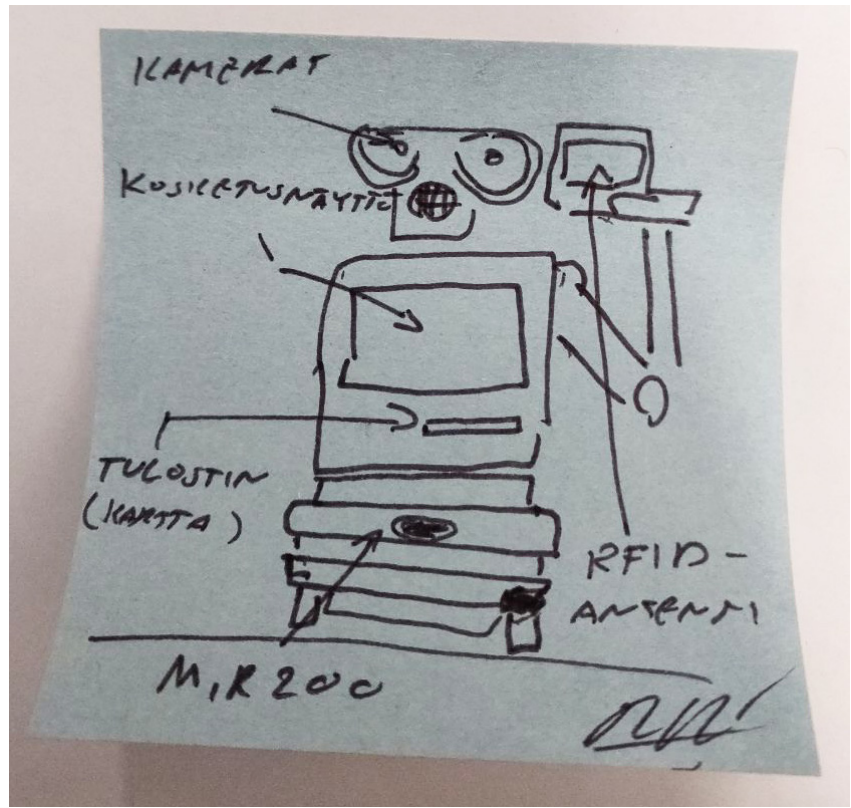 KAMERAT
KOSKETUSNÄYTTÖ
TULOSTIN
(KARTTA)
RFID-
ANTENNI
MiR200